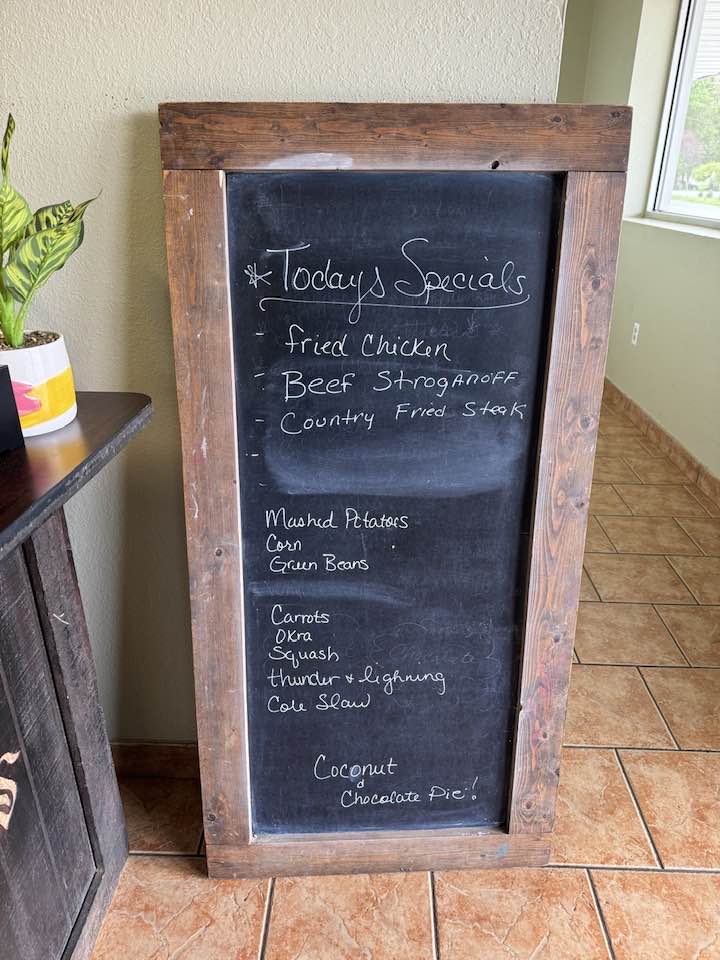 * Todays Specials
- fried Chicken
- Beef Stroganoff
- Country Fried Steak
-
Mashed Potatoes
Corn
Green Beans
Carrots
Okra
Squash
thunder & lighning
Cole Slaw
Coconut
&
Chocolate Pie!